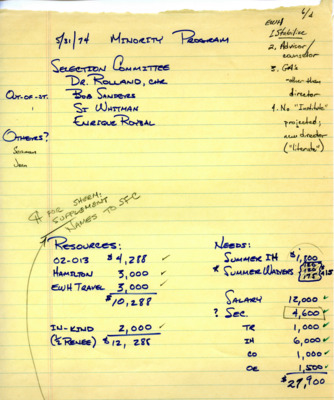 4/4
EWH
1. Stabilize
2. Advisor/
counselor
3. GA's
rather than
director
4. No "Institute"
projected;
new director
("literate")
5/31/74 MINORITY PROGRAM
SELECTION COMMITTEE
DR. ROLLAND, CHR
OUT-OF-ST. BOB SANDERS
SI WHITMAN
ENRIQUE ROYBAL
OTHERS?
FOR SHERM:
SUPPLEMENT
NAMES TO SFC
RESOURCES:
02-013 $4,288
HAMILTON 3,000
EWH TRAVEL 3,000
$10,288
IN-KIND 2,000
(½ RENEE) $12,288
NEEDS:
SUMMER IH $1,800
* SUMMER WAIVERS
SALARY 12,000
? SEC. 4,600
TR 1,000
IH 6,000
CO 1,000
OE 1,500
$27,900